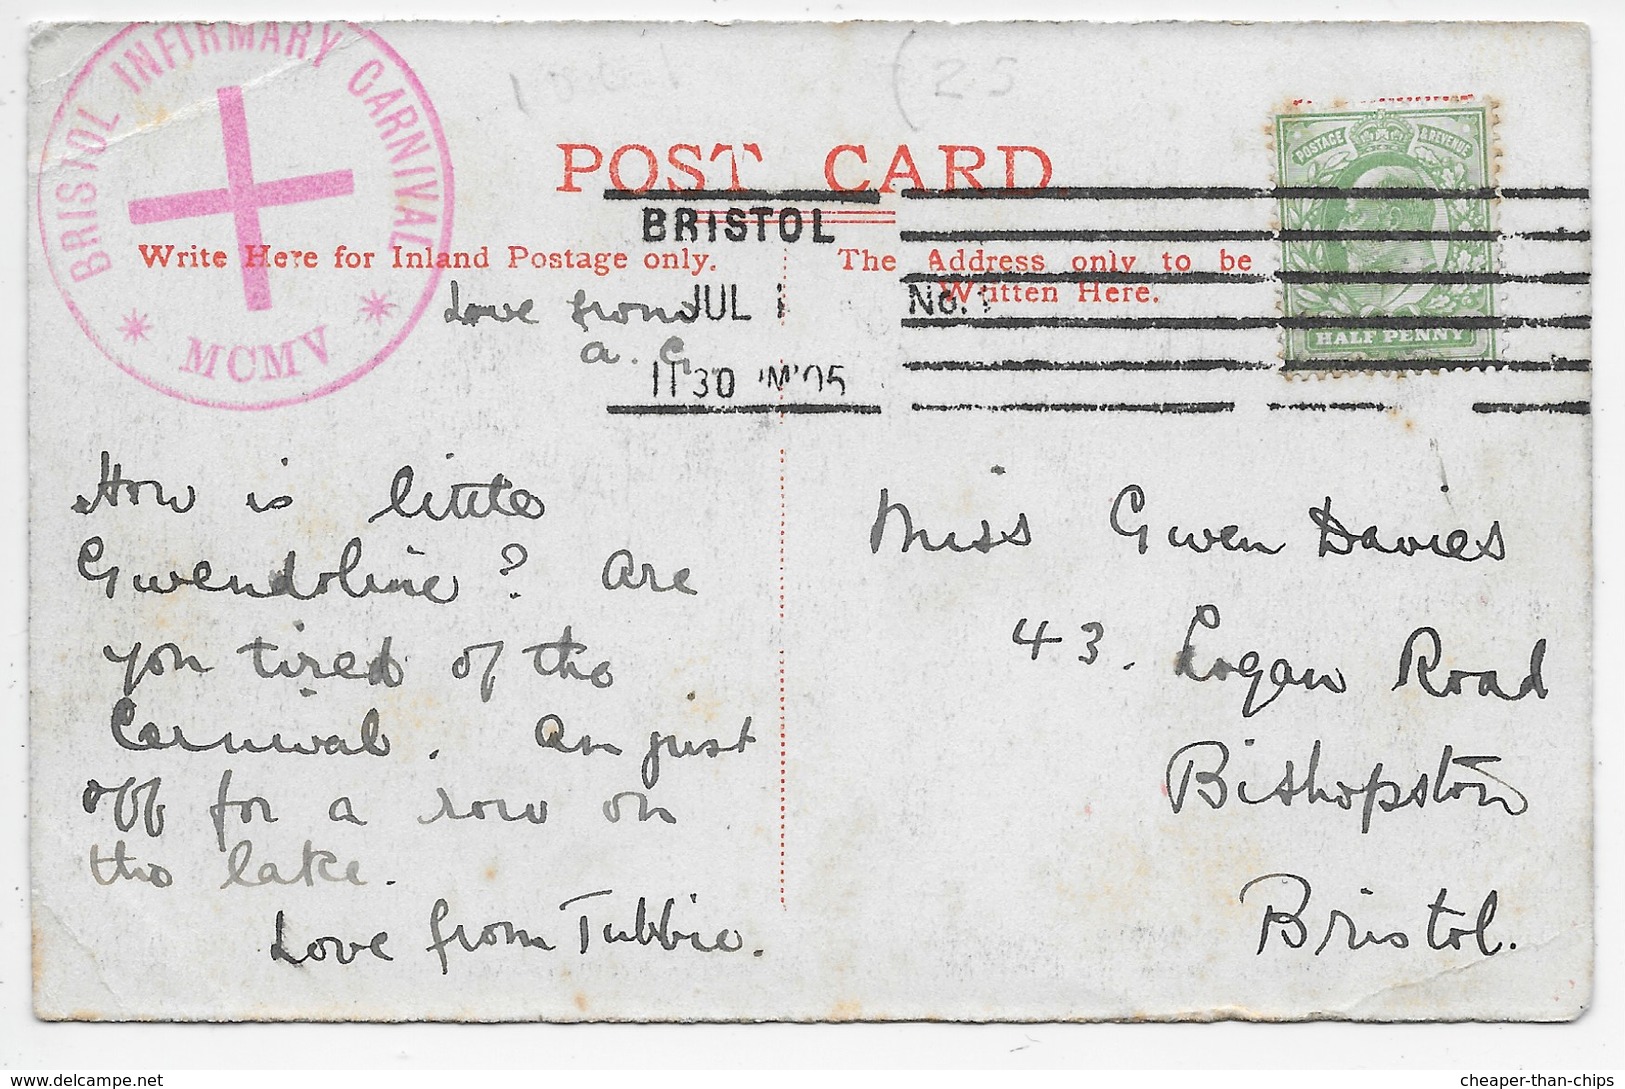 BRISTOL INFIRMARY CARNIVAL
MCMV
(25
POST CARD.
POSTAGE & REVENUE
HALF PENNY
BRISTOL
JUL 1
No. 1
11 30 M 05
Write Here for Inland Postage only.
The Address only to be
Written Here.
Love from
a. G.
How is little
Gwendoline? Are
you tired of the
Carnival. Am just
off for a row on
the lake.
Love from Tubbie.
Miss Gwen Davies
43. Logan Road
Bishopston
Bristol.
cheaper-than-chips